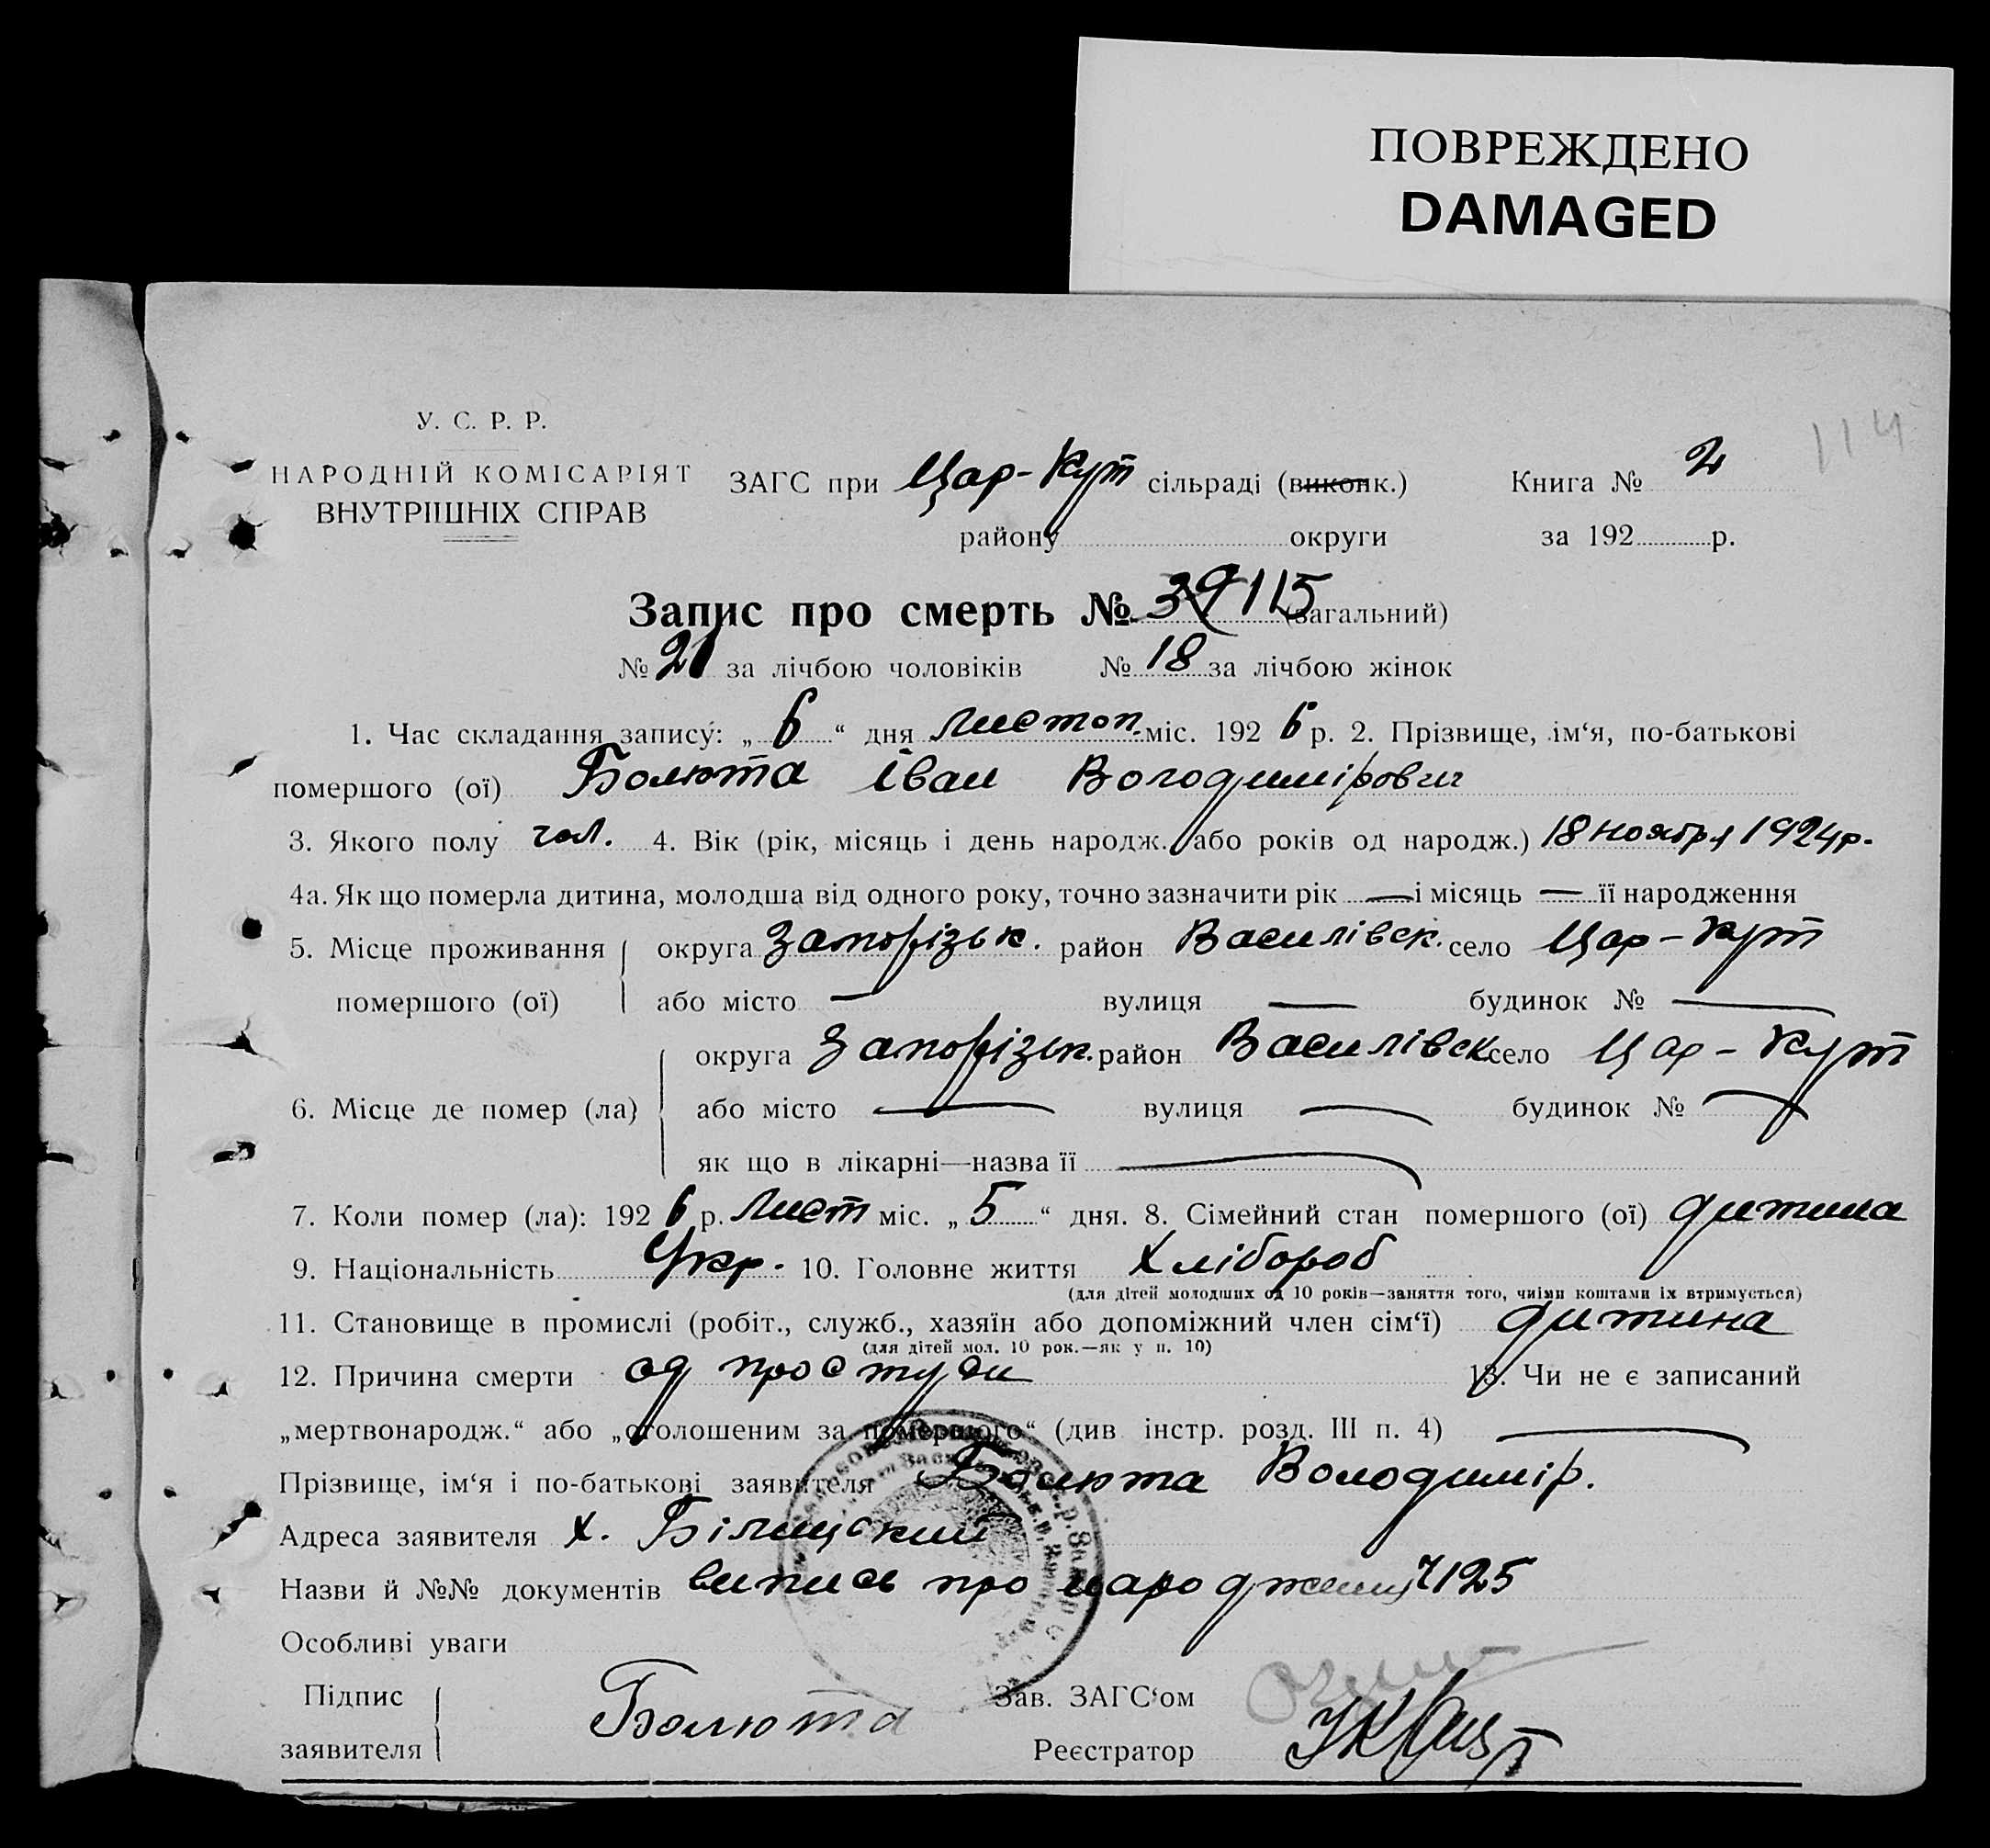 ПОВРЕЖДЕНО
DAMAGED
114
У. С. Р. Р.
НАРОДНІЙ КОМІСАРІЯТ
ВНУТРІШНІХ СПРАВ
ЗАГС при Цар-Кут сільраді (виконк.) Книга № 2
району округи за 192 р.
Запис про смерть № 39 115 (загальний)
№ 21 за лічбою чоловіків № 18 за лічбою жінок
1. Час складання запису: „ 6 “ дня листоп. міс. 192 6 р. 2. Прізвище, ім‘я, по-батькові
помершого (ої) Болюта Іван Володимірович
3. Якого полу чол. 4. Вік (рік, місяць і день народж. або років од народж.) 18 ноября 1924 р.
4а. Як що померла дитина, молодша від одного року, точно зазначити рік — і місяць — її народження
5. Місце проживання округа Запорізьк. район Василівск. село Цар-Кут
помершого (ої) або місто — вулиця — будинок № —
округа Запорізьк. район Василівск село Цар-Кут
6. Місце де помер (ла) або місто — вулиця — будинок № —
як що в лікарні—назва її —
7. Коли помер (ла): 192 6 р. Лист міс. „ 5 “ дня. 8. Сімейний стан помершого (ої) дитина
9. Національність Укр. 10. Головне життя Хлібороб
(для дітей молодших од 10 років—заняття того, чиїми коштами їх втримується)
11. Становище в промислі (робіт., служб., хазяїн або допоміжний член сім‘ї) дитина
(для дітей мол. 10 рок.—як у п. 10)
12. Причина смерти од простуди 13. Чи не є записаний
„мертвонародж.“ або „оголошеним за помершого“ (див інстр. розд. III п. 4) —
Прізвище, ім‘я і по-батькові заявителя Болюта Володимір.
Адреса заявителя х. Білицський
Назви й №№ документів випись про народження 125
Особливі уваги
Підпис Болюта Зав. ЗАГС‘ом
заявителя Реєстратор